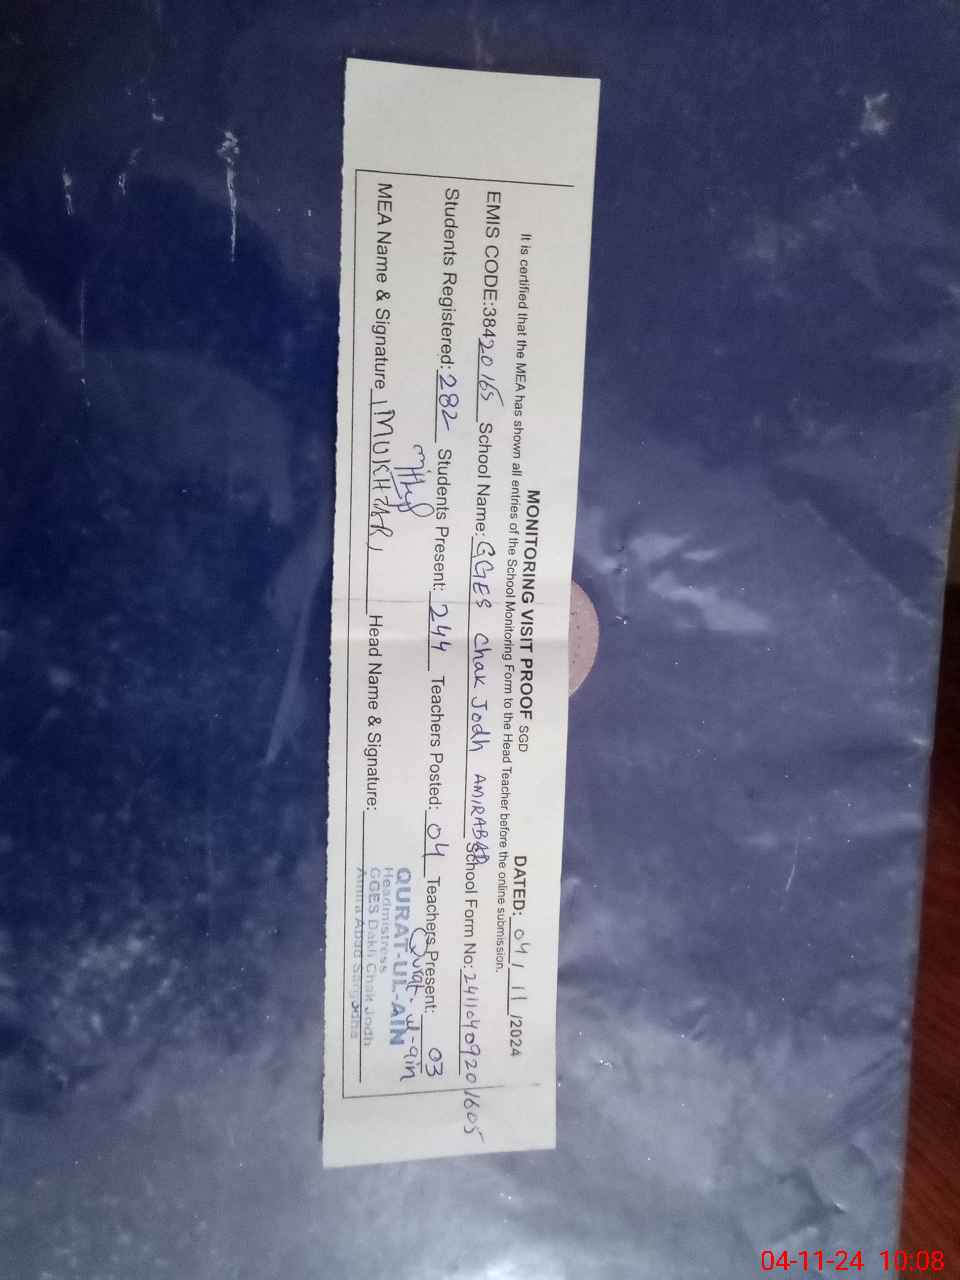 MONITORING VISIT PROOF SGD DATED: 04/11/2024
It is certified that the MEA has shown all entries of the School Monitoring Form to the Head Teacher before the online submission.
EMIS CODE:38420165 School Name: GGES Chak Jodh AMIRABAD School Form No: 2411040920 1605
Students Registered: 282 Students Present: 244 Teachers Posted: 04 Teachers Present: 03
MEA Name & Signature MUKHTAR Head Name & Signature: Qurat-ul-ain
QURAT-UL-AIN
Headmistress
GGES Dakli Chak Jodh
Amira Abad Sargodha
04-11-24 10:08